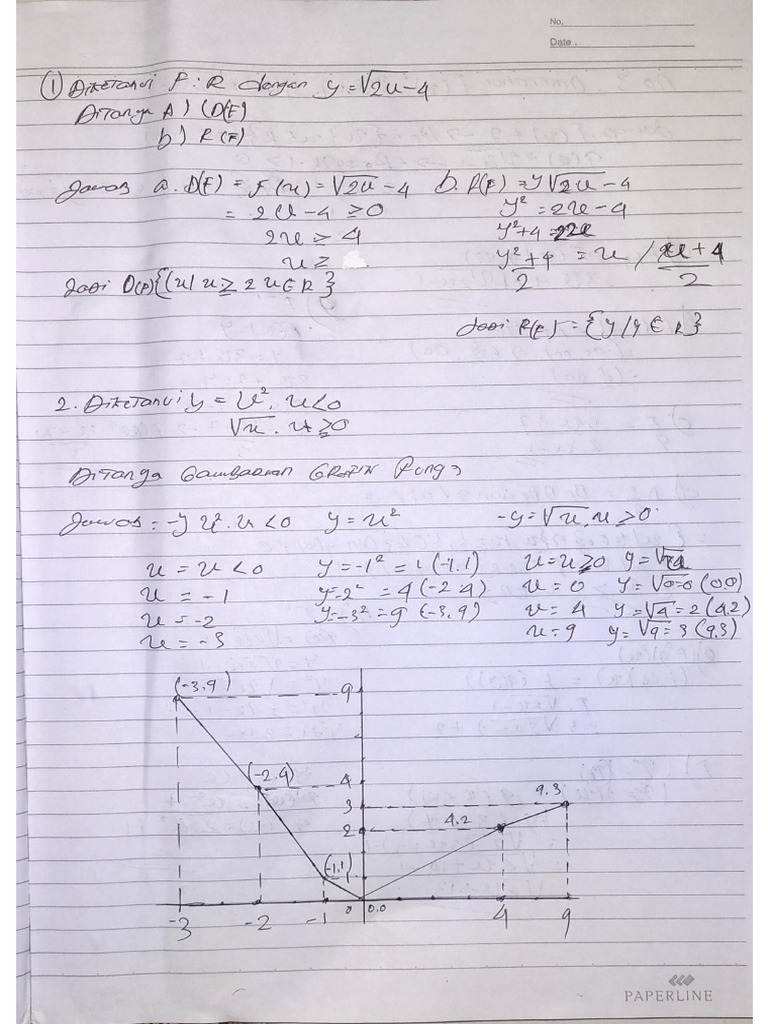 No.
Date .
① Diketahui F : R dengan y = √2u-4
Ditanya A) (D(F)
b) R(F)
Jawab a. D(F) = F(u) = √2u-4 b. R(F) = y √2u-4
= 2u-4 ≥0 y² = 2u-4
2u ≥ 4 y²+4 = 2u
u ≥ y²+4/2 = u / u+4/2
Jadi D(F){(u/u ≥ 2 u∈R}
Jadi R(F) = {y/y ∈ R}
2. Diketahui y = u², u<0
√u . u ≥0
Ditanya Gambarkan Grafik Fungsi
Jawab = -y u². u <0 y = u² -y = √u, u ≥0
u = u <0 y = -1² = 1 (-1.1) u = u ≥0 y = √u
u = -1 y = -2² = 4 (-2.4) u = 0 y = √0 = 0 (0.0)
u = -2 y = -3² = 9 (-3.9) u = 4 y = √4 = 2 (4.2)
u = -3 u = 9 y = √9 = 3 (9.3)
(-3.9) 9
(-2.4) 4 9.3
3
2 4.2
(-1.1)
-3 -2 -1 0 0.0 4 9
PAPERLINE